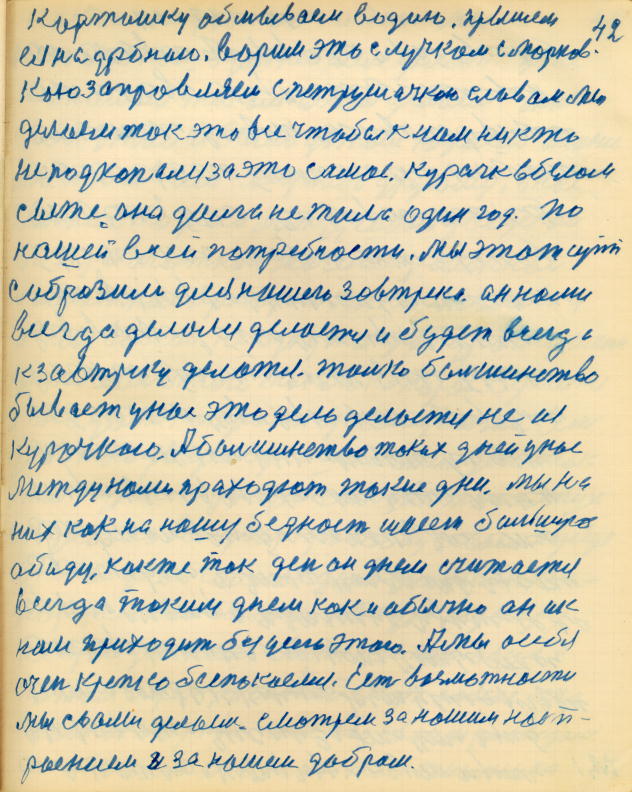 42
Картошку обмываем водою, крышем
ея на дрбною. ворим это с лучком с морков-
кою заправляем с петрушачкою словам мы
делаем так это все чтобы к нам никто
не подкопался за это самое. Курачк в белом
свете, она долга не жила один год. По
нашей всей потребности. Мы этот суп
собразили для нашего завтрека. он нами
всегда делали делается и будет всегда
к завтрику делатся. только большинство
бывает у нас это дело делается не из
курочкою. А большинство таких дней у нас
между нами праходзют такие дни. Мы на
них как на нашу бедност имеем большую
обиду, как же так ден он днем считается
всегда таким днем как и обычно он ик
нам приходит без весь этого. А мы особя
очен крепко беспокоемся. Ест возможности
мы сваии делаим. смотрем за нашим наст-
роением и за нашем добром.